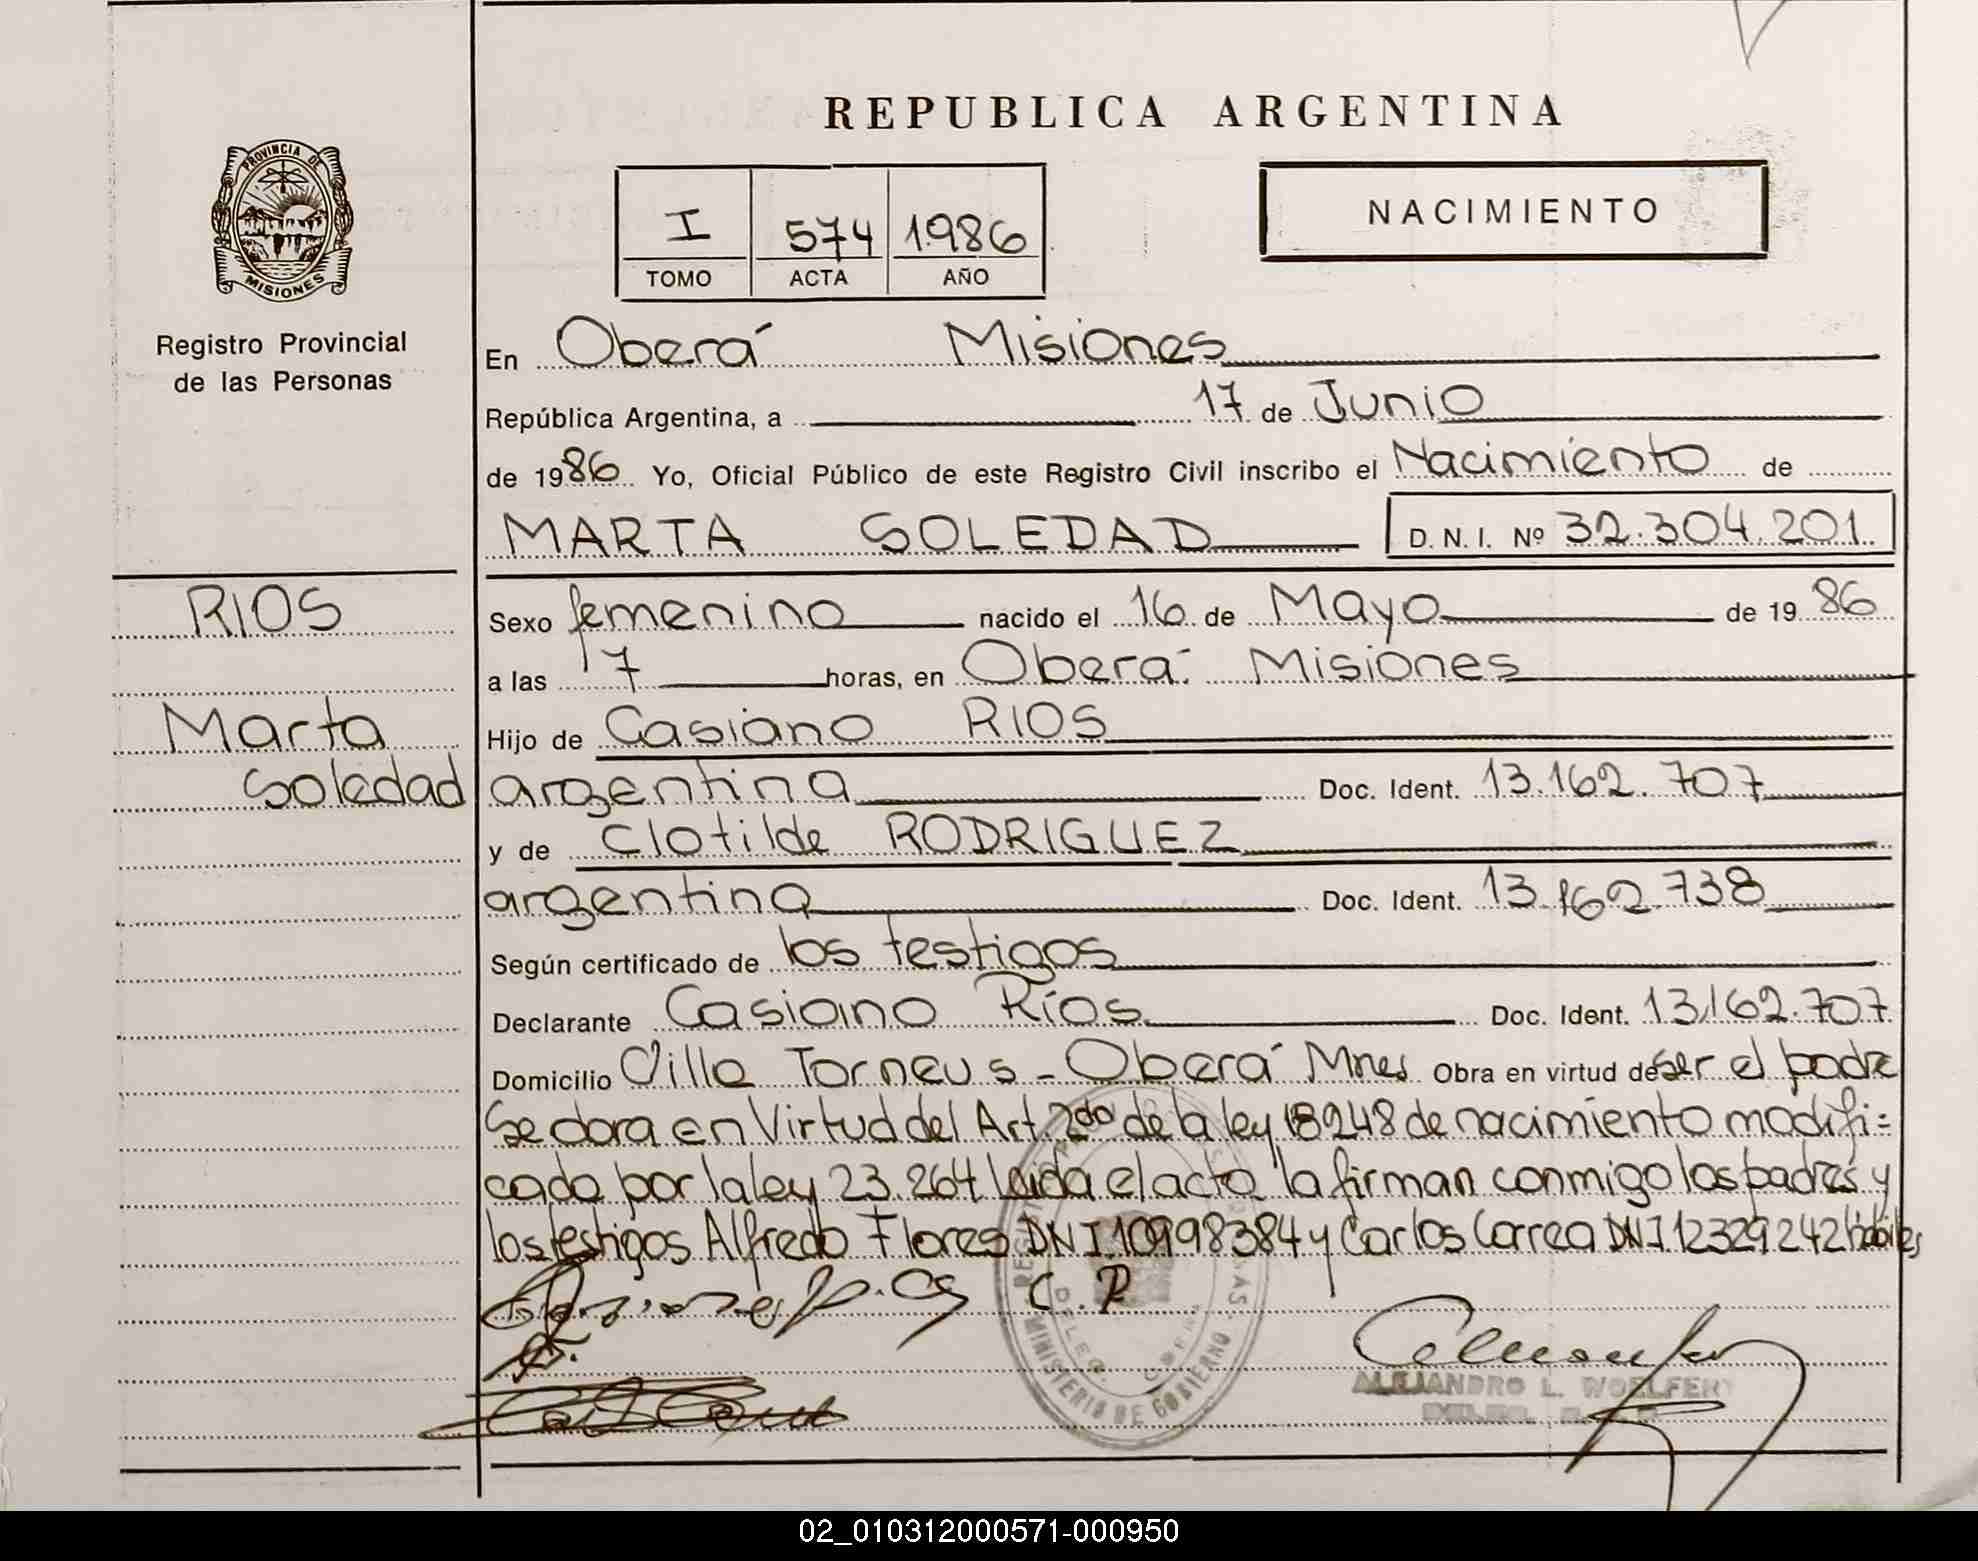 REPUBLICA ARGENTINA
PROVINCIA DE
MISIONES
Registro Provincial
de las Personas
I 574 1986
TOMO ACTA AÑO
NACIMIENTO
En Oberá Misiones
República Argentina, a 17 de Junio
de 1986 Yo, Oficial Público de este Registro Civil inscribo el Nacimiento de
MARTA SOLEDAD D. N. I. Nº 32.304.201
RIOS
Marta
Soledad
Sexo femenino nacido el 16 de Mayo de 19 86
a las 17 horas, en Oberá Misiones
Hijo de Casiano RIOS
argentina Doc. Ident. 13.162.707
y de Clotilde RODRIGUEZ
argentina Doc. Ident. 13.162.738
Según certificado de los testigos
Declarante Casiano Ríos Doc. Ident. 13.162.707
Domicilio Villa Torneus - Oberá Mnes Obra en virtud de ser el padre
Se obra en Virtud del Art. 2do de la ley 18248 de nacimiento modifi=
cado por la ley 23.264 leida el acta la firman conmigo los padres y
los testigos Alfredo Flores DNI 10998384 y Carlos Correa DNI 12329242 hábiles
C. R
MINISTERIO DE GOBIERNO
ALEJANDRO L. WOELFERT
02_010312000571-000950